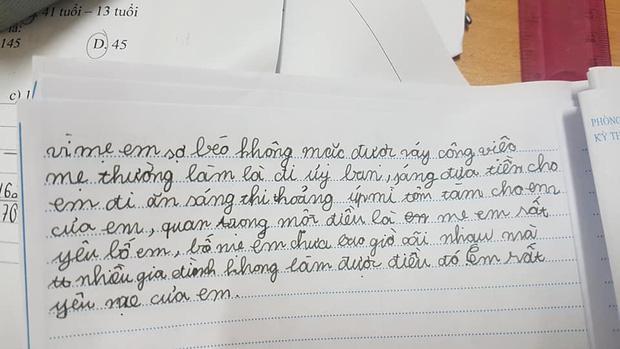 41 tuổi – 13 tuổi
là:
145
D. 45
c) 1
PHÒNG
KỲ TH
vì mẹ em sợ béo không mặc được váy công việc
mẹ thường làm là đi ủy ban, sáng đưa tiền cho
em đi ăn sáng thi thoảng úp mì tôm tăm cho em
của em, quan tương mỗi điều là mẹ em rất
yêu bố em, bố mẹ em chưa bao giờ cãi nhau mà
nhiều gia đình không làm được điều đó Em rất
yêu mẹ của em.
160
70